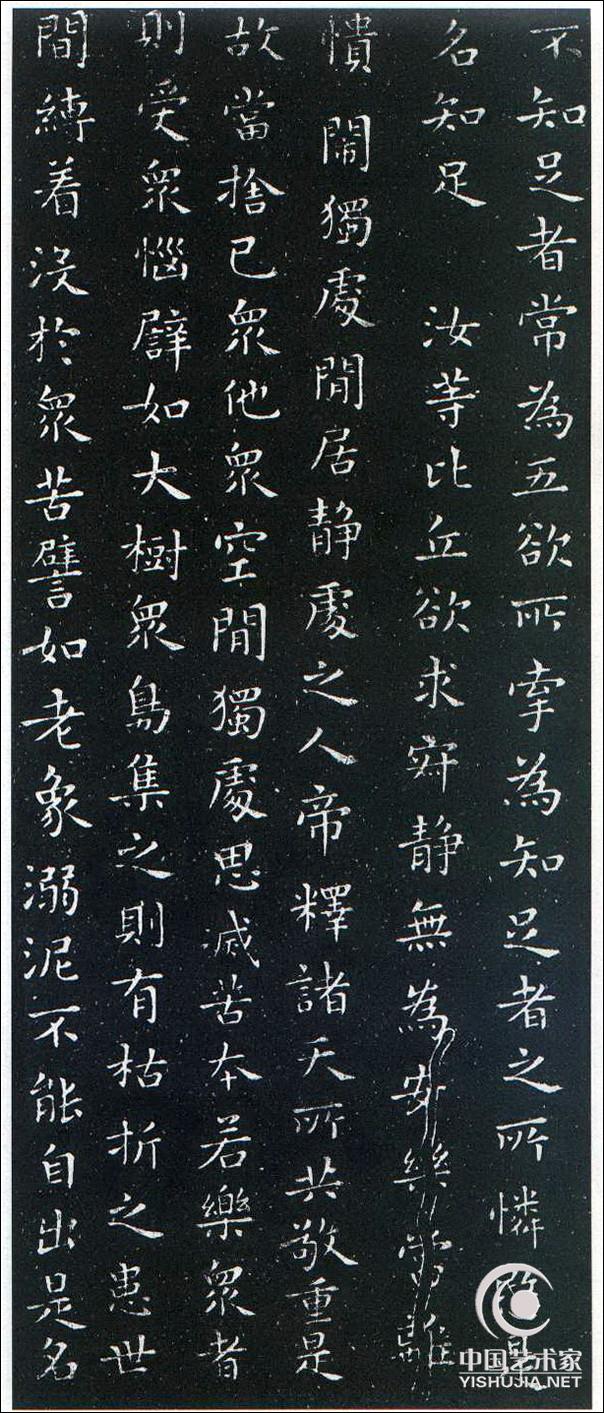 不知足者常為五欲所牽為知足者之所憐愍是
名知足 汝等比丘欲求寂静無為安樂當離
憒閙獨處閒居静處之人帝釋諸天所共敬重是
故當捨己衆他衆空閒獨處思滅苦本若樂衆者
則受衆惱譬如大樹衆鳥集之則有枯折之患世
間縛着没於衆苦譬如老象溺泥不能自出是名
中国艺术家
YISHUJIA.NET